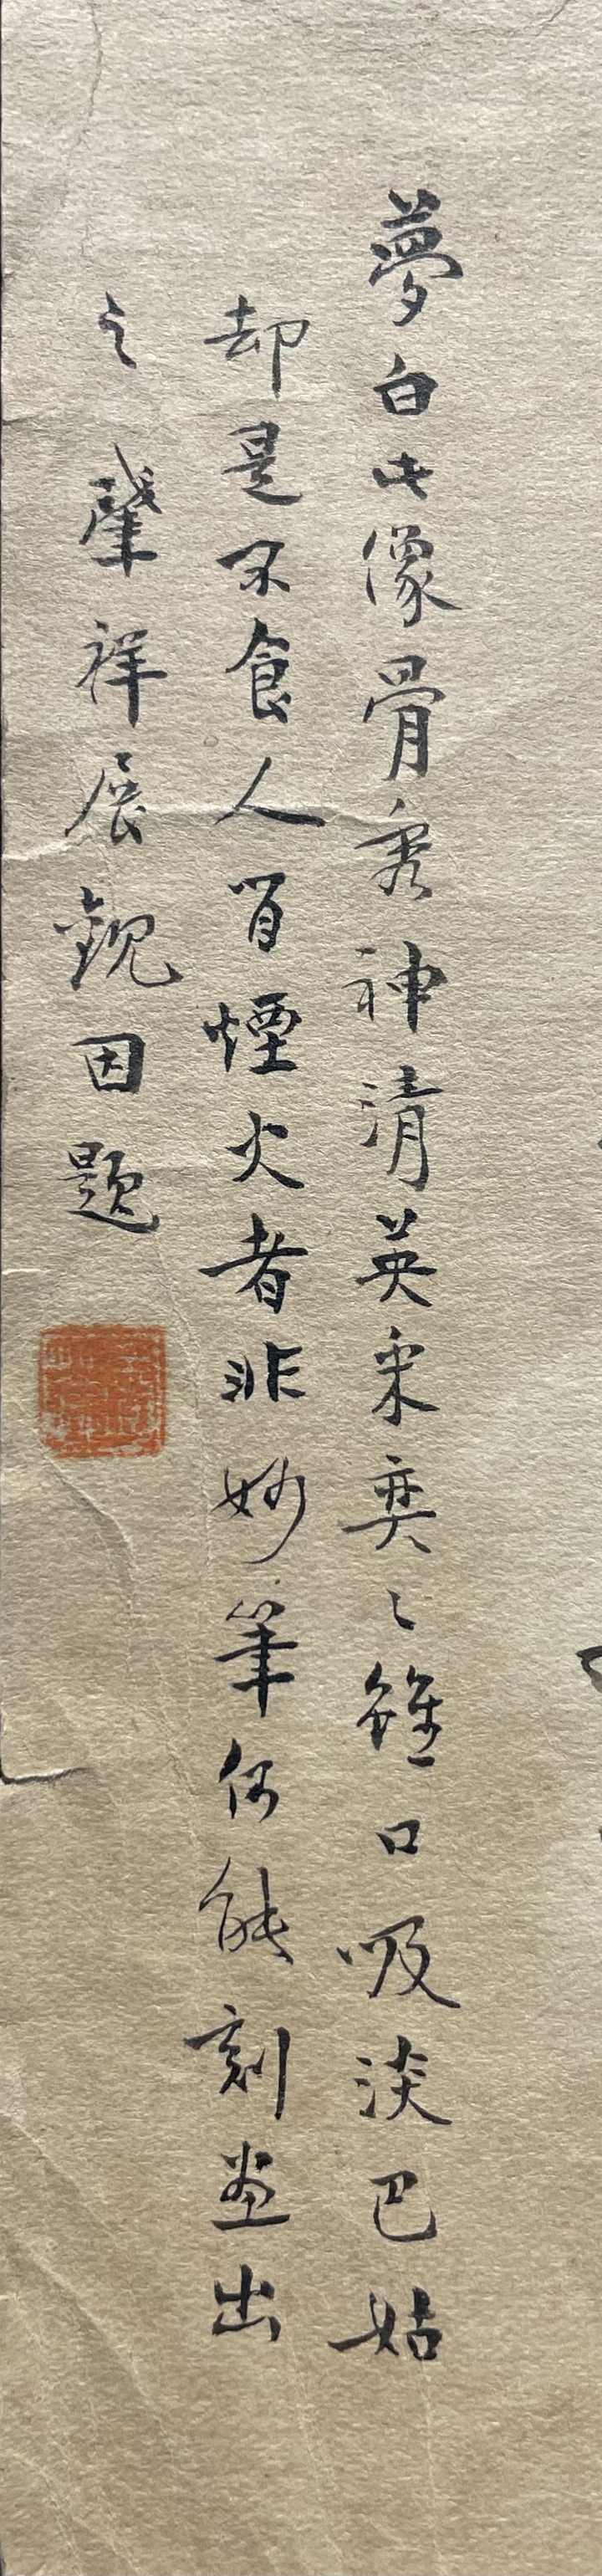 夢白此像骨秀神清英采奕〻雖口吸淡巴姑
却是不食人间煙火者非妙筆何能刻畫出
之肇祥展観因題